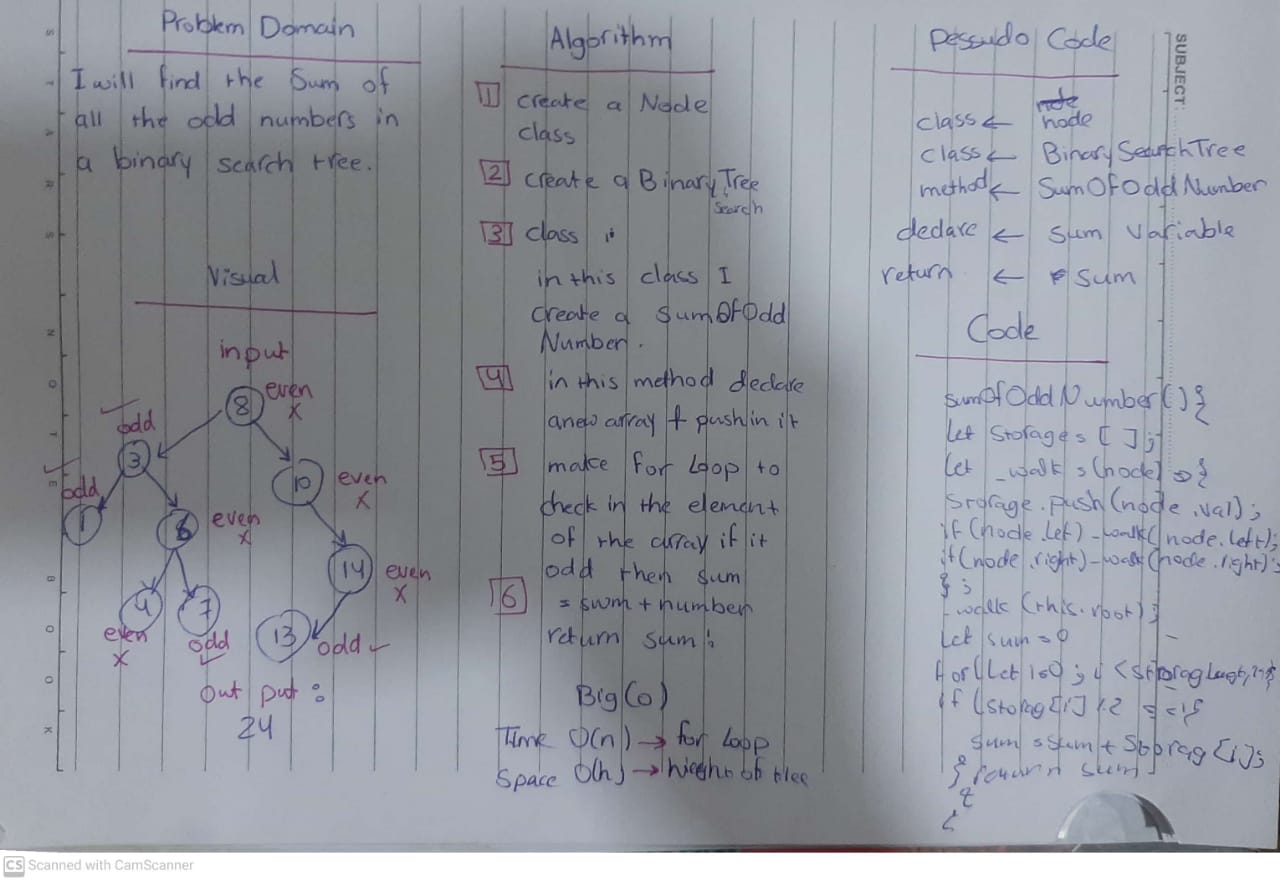 Problem Domain
I will find the Sum of
all the odd numbers in
a binary search tree.
Visual
input
8 even
x
odd
3
odd
1
10 even
x
6 even
x
14 even
x
4
even
x
7
odd
13 odd
out put :
24
Algorithm
1 create a Node
class
2 create a Binary Tree
Search
3 class :
in this class I
create a SumOfOdd
Number.
4 in this method declare
a new array + push in it
5 make for Loop to
check in the element
of the array if it
odd then sum
6 = sum + number
return sum :
Big(O)
Time O(n) → for Loop
Space O(h) → hieght of tree
Pessudo Code
class ← node
class ← BinarySearchTree
method ← SumOfOddNumber
declare ← sum variable
return ← sum
SUBJECT:
Code
sumOfOddNumber(){
let storage = [ ];
let _walk = (node) => {
storage.push(node.val);
if (node.left) _walk(node.left);
if (node.right) _walk(node.right);
} ;
_walk (this.root);
let sum = 0
for (let i=0 ; i <
if (storag[i] % 2 ==1){
sum = sum + Storag [i];
} return sum
}
}
CS Scanned with CamScanner